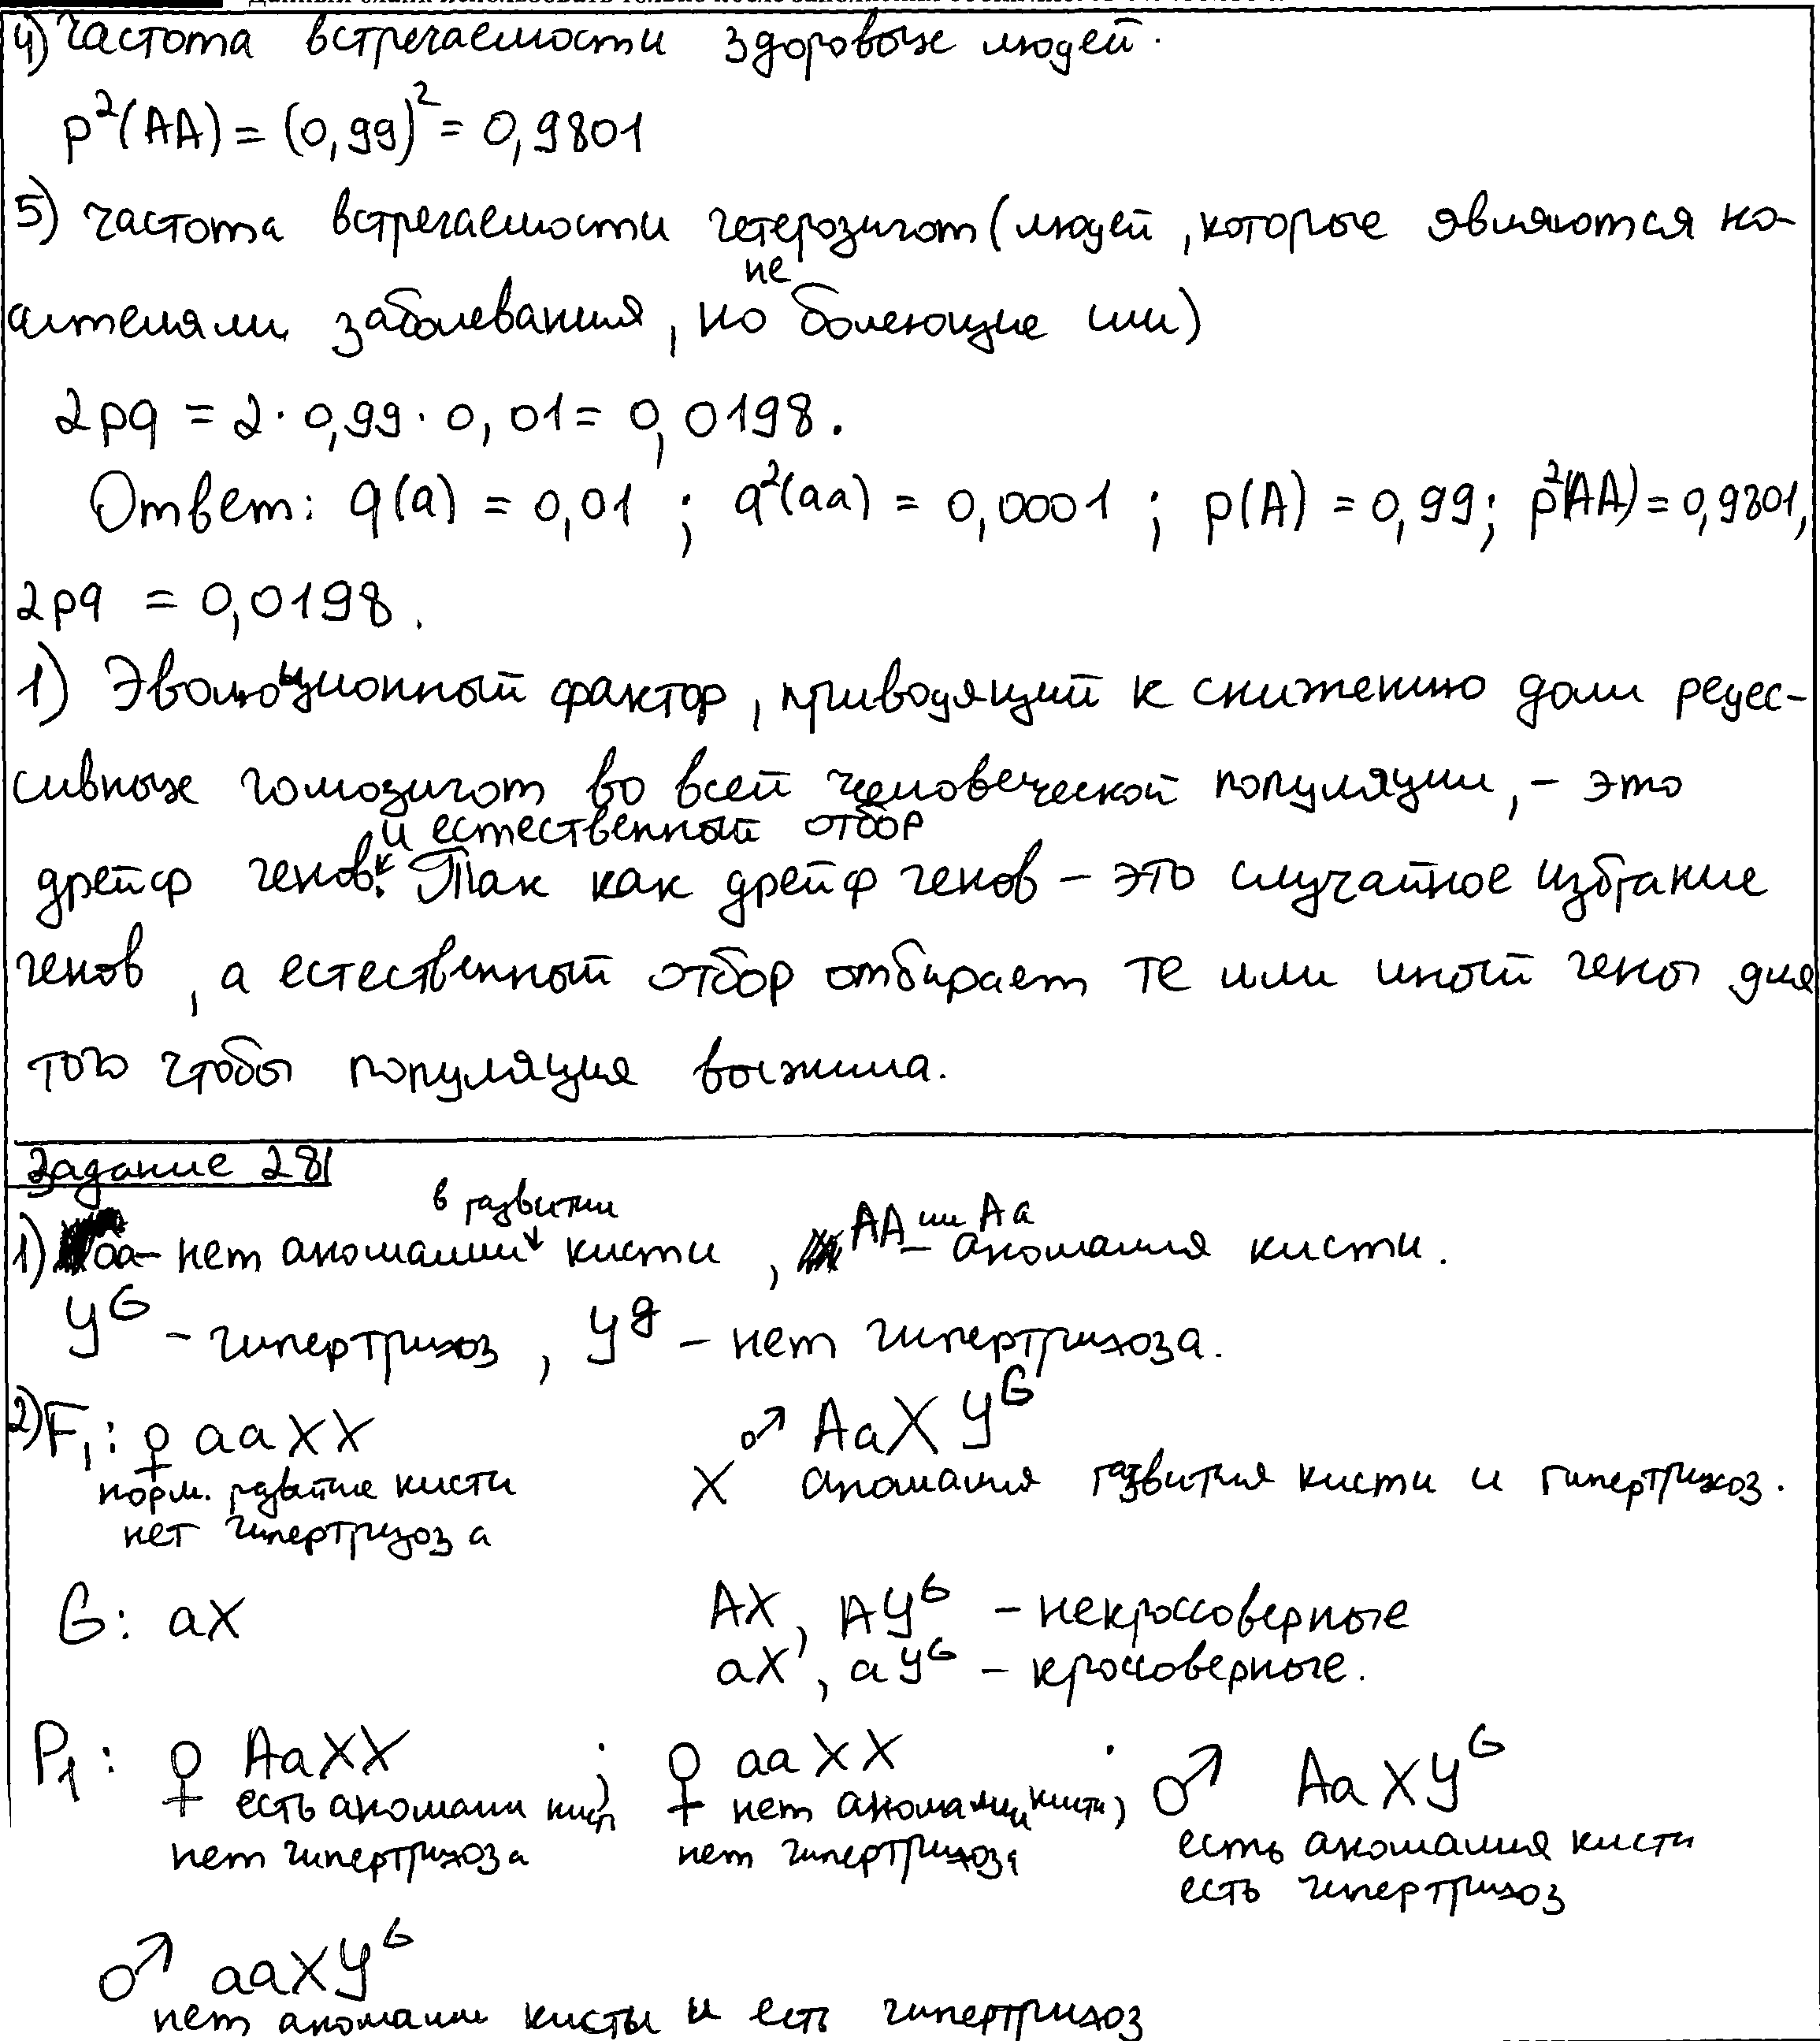 4) Частота встречаемости здоровых людей.
p²(AA) = (0,99)² = 0,9801
5) Частота встречаемости гетерозигот (людей, которые являются но-
сителями заболевания, но не болеющие им)
2pq = 2 · 0,99 · 0,01 = 0,0198.
Ответ: q(a) = 0,01 ; q²(aa) = 0,0001 ; p(A) = 0,99; p²(AA) = 0,9801,
2pq = 0,0198.
1) Эволюционный фактор, приводящий к снижению доли рецес-
сивных гомозигот во всей человеческой популяции, - это
дрейф генов и естественный отбор. Так как дрейф генов - это случайное избрание
генов, а естественный отбор отбирает те или иной гены для
того чтобы популяция выжила.
Задание 28
1) aa - нет аномалии в развитии кисти, AA или Aa - аномалия кисти.
Y^G - гипертрихоз, Y^g - нет гипертрихоза.
2) F₁: ♀ aaXX X ♂ AaXY^G
норм. развитие кисти аномалия развития кисти и гипертрихоз.
нет гипертрихоза
G: aX AX, AY^G - некроссоверные
aX, aY^G - кроссоверные.
P₁: ♀ AaXX ; ♀ aaXX ; ♂ AaXY^G
есть аномалии кисти нет аномалии кисти есть аномалия кисти
нет гипертрихоза нет гипертрихоза есть гипертрихоз
♂ aaXY^G
нет аномалии кисты и есть гипертрихоз